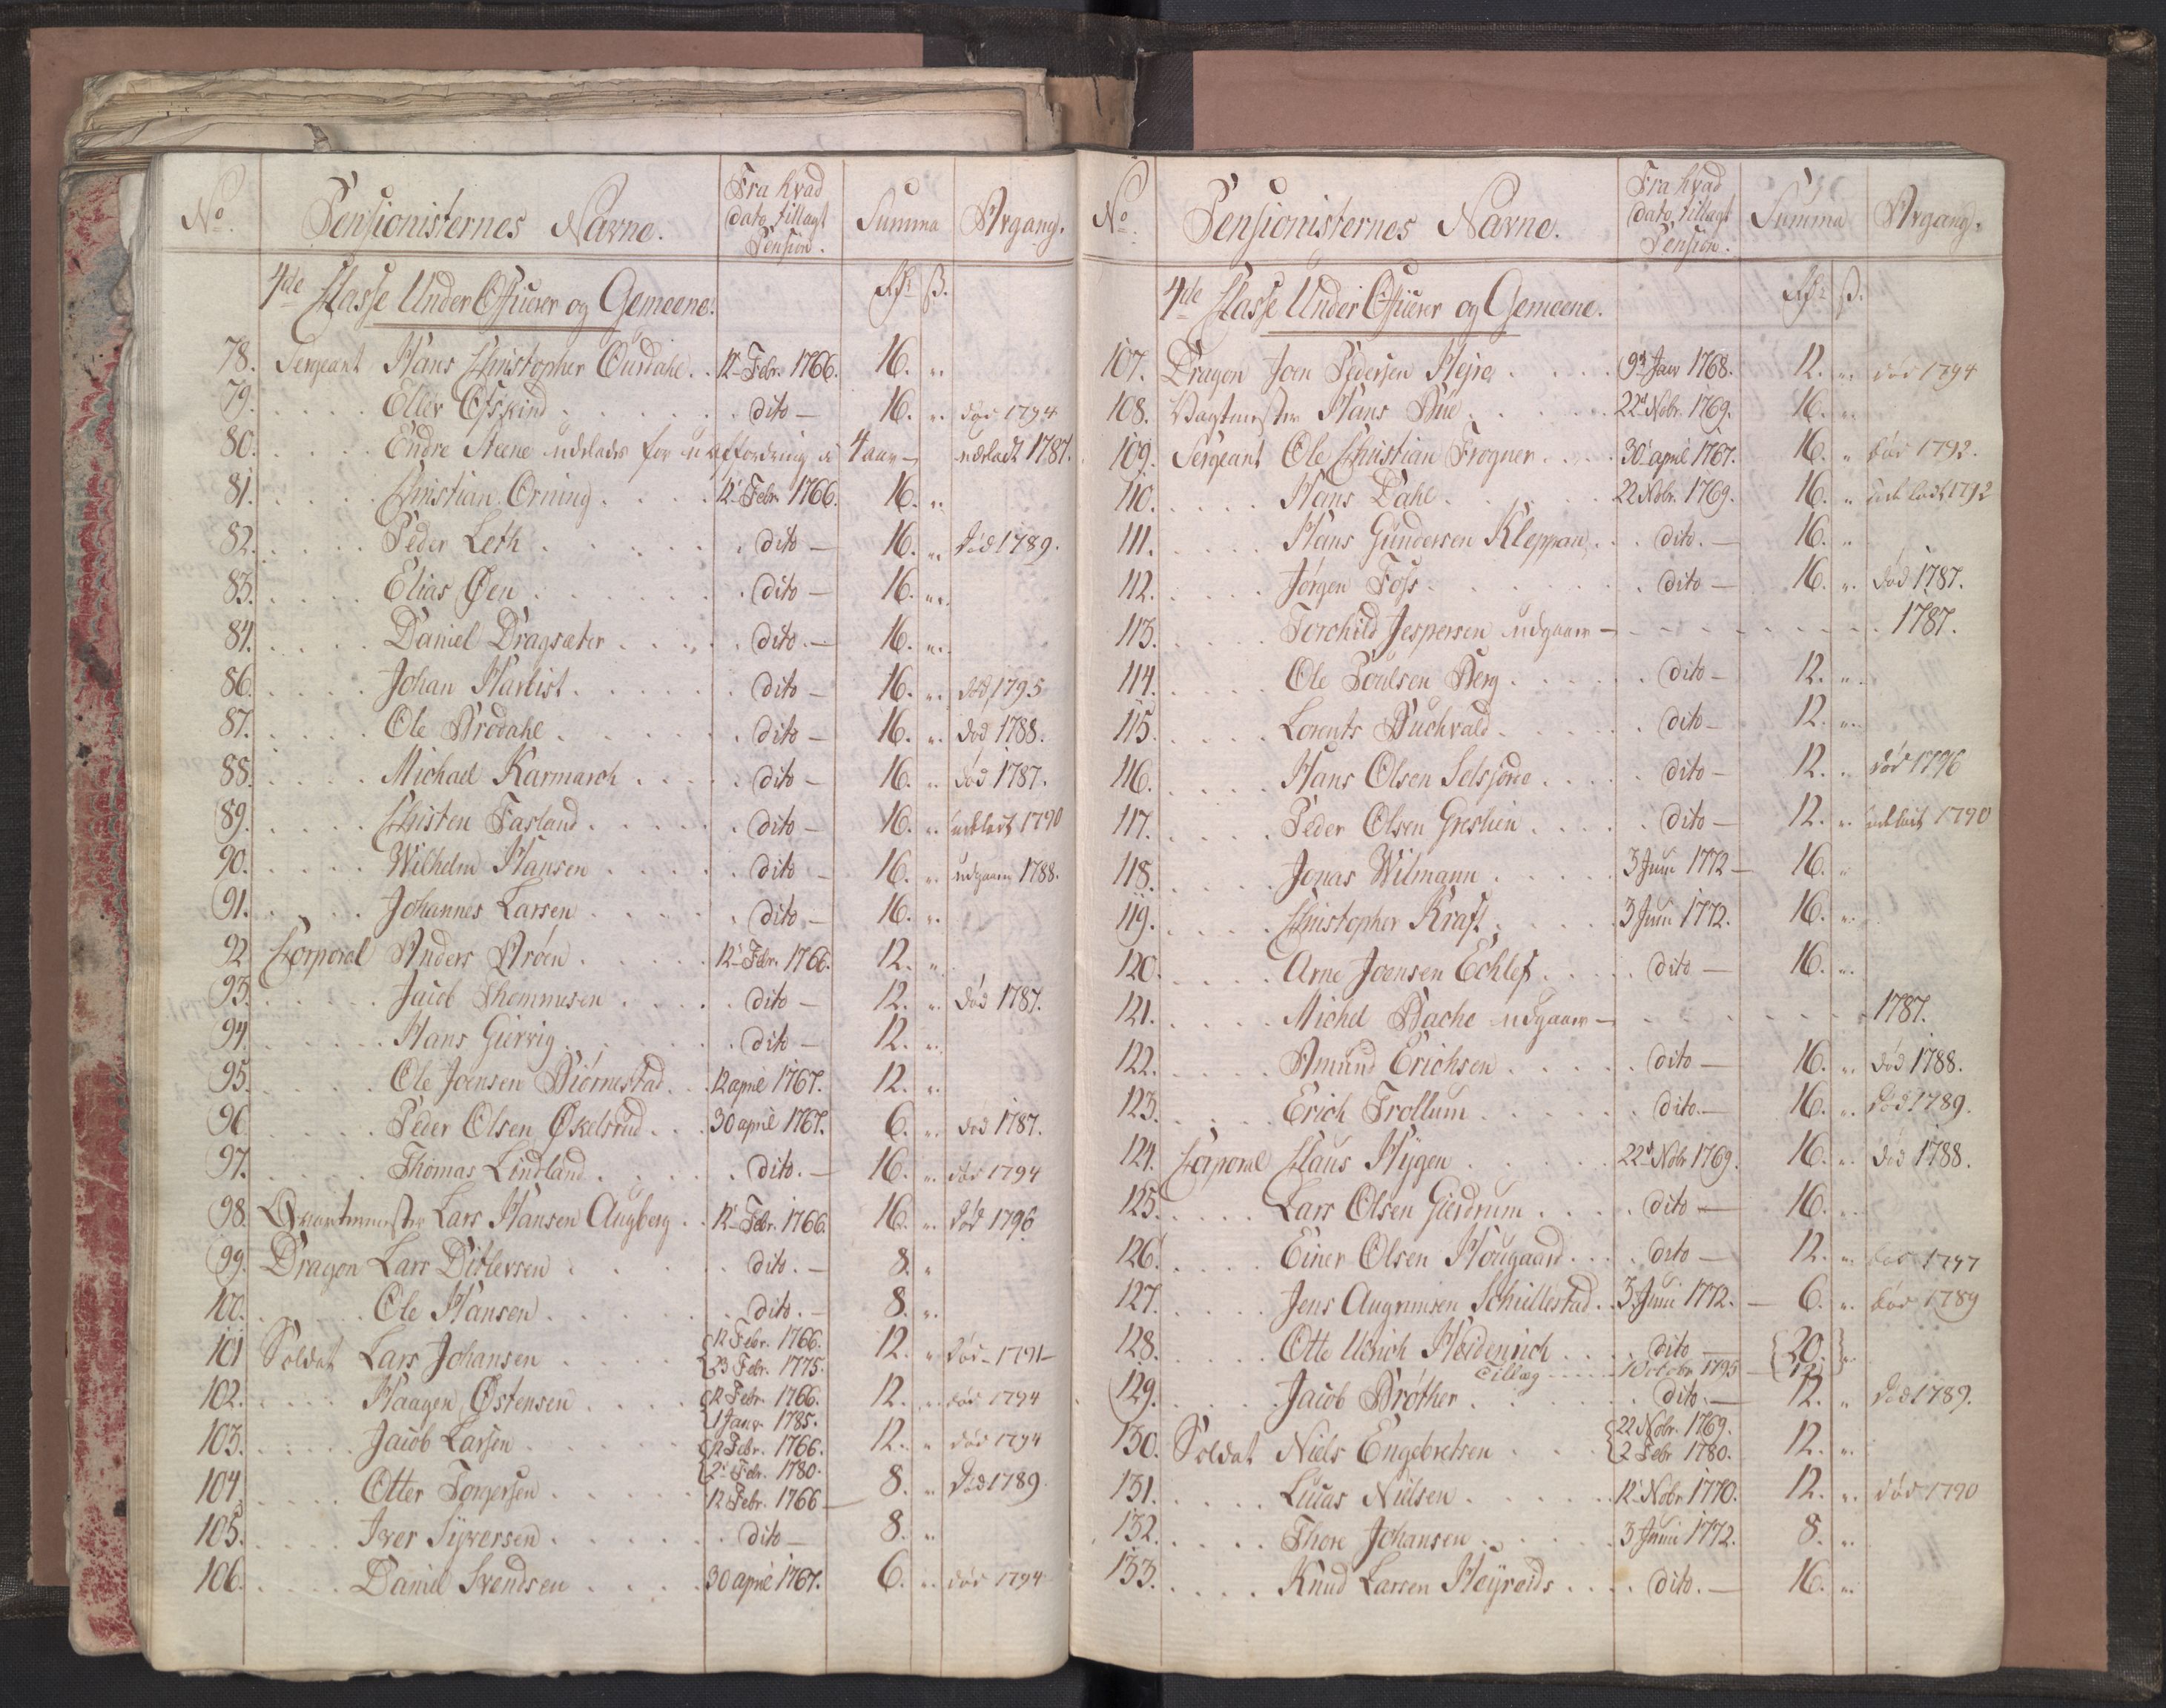 No. Pensionisternes Navne. Fra hvad dato tillagt Pension. Summa Afgang.
4de Classe Under Officerer og Gemeene. Rdr ß.
78. Sergeant Hans Christopher Ourdahl . . 12t Febr. 1766. 16. "
79. . . . . Eller Ofskind . . . . dito — 16. " død 1794
80. . . . . Endre Steene udelades for uaffordring i 4 aar — udeladt 1787.
81. . . . . Christian Orning . . . . 12t Febr. 1766. 16. "
82. . . . . Peder Leth . . . . dito — 16. " død 1789.
83. . . . . Elias Øen . . . . dito — 16. "
84. . . . . Daniel Dragsæter . . . . dito. — 16. "
86. . . . . Johan Harbist . . . . dito — 16. " død 1795
87. . . . . Ole Brodahl . . . . dito — 16. " død 1788.
88. . . . . Michael Karmarch . . . . dito — 16. " død 1787.
89. . . . . Christen Fasland . . . . dito — 16. " udeladt 1790
90. . . . . Wilhelm Hansen . . . . dito — 16. " udgaaer 1788.
91. . . . . Johannes Larsen . . . . dito — 16. "
92 Corporal Anders Aröen . . . . 12t Febr. 1766. 12. "
93. . . . . Jacob Thommesen . . . . dito — 12. " død 1787.
94. . . . . Hans Giervig . . . . dito — 12. "
95. . . . . Ole Joensen Biörnestad . . 12 april 1767. 12. "
96 . . . . Peder Olsen Økelsrud . . 30 april 1767. 6. " død 1787.
97. . . . . Thomas Lindland . . . . dito. — 16. " død 1794
98. Qvartermester Lars Hansen Augberg . . 12t Febr. 1766. 16. " død 1796
99. Dragon Lars Ditlevsen . . . . dito. — 8. "
100. . . . . Ole Hansen . . . . dito. — 8. "
101 Soldat Lars Johansen . . . . 12 Febr. 1766. 23 Febr. 1775. 12. " død - 1791 —
102. . . . . Haagen Østensen . . . . 12 Febr. 1766. 1 Janr. 1785. 12. " død 1794
103. . . . . Jacob Larsen . . . . 12 Febr. 1766. 2t Febr. 1780. 12. " død 1794
104. . . . . Otter Torgersen . . . . 12 Febr. 1766 — 8. " død 1789
105. . . . . Iver Syversen . . . . dito — 8. "
106. . . . . Daniel Svendsen . . . . 30 april 1767. 6. " død 1794
No. Pensionisternes Navne. Fra hvad dato tillagt Pension. Summa Afgang.
4de Classe Under Officerer og Gemeene. Rdr ß.
107. Dragon Joen Pedersen Hejre . . . . 9d Janv 1768. 12. " død 1794
108. Vagtmester Hans Bue . . . . 22d Nobr. 1769. 16. "
109. Sergeant Ole Christian Frogner . . . . 30 april 1767. 16. " død 1792.
110. . . . . Hans Dahl . . . . 22 Nobr. 1769. 16. " udeladt 1792
111. . . . . Hans Gundersen Kleppan . . dito. — 16. "
112. . . . . Jörgen Foss . . . . dito — 16. " død 1787.
113. . . . . Torchild Jespersen udgaaer — - - - - - 1787.
114. . . . . Ole Poulsen Berg . . . . dito — 12. "
115. . . . . Lorents Buchvald . . . . dito — 12. "
116. . . . . Hans Olsen Selsjord . . . . dito — 12. " død 1796
117. . . . . Peder Olsen Greslien . . . . dito — 12. " udeladt 1790
118. . . . . Jonas Wilmann . . . . 3 Juni 1772 — 16. "
119. . . . . Christopher Kraft . . . . 3 Juni 1772. 16. "
120. . . . . Arne Joensen Echlef . . . . dito — 16. "
121. . . . . Michel Bache udgaaer — - - - - 1787.
122. . . . . Amund Erichsen . . . . dito — 16. " død 1788.
123. . . . . Erich Trollum . . . . dito. — 16. " død 1789.
124. Corporal Claus Hygen . . . . 22d Nobr 1769. 16. " død 1788.
125. . . . . Lars Olsen Gierdrum . . . . dito — 16. "
126. . . . . Einer Olsen Hougaard . . . . dito — 12. " død 1797
127. . . . . Jens Augrimsen Schiellestad . . 3 Juni 1772. — 6. " død 1789
128. . . . . Otte Ulrich Heidenrich . . . . dito — 20. "
Tillæg . . . . 1 Octobr 1795 — 12
129. . . . . Jacob Bröther . . . . dito. — 12. " død 1789.
130. Soldat Niels Engebretsen . . . 22 Nobr. 1769. 2 Febr 1780. 12. "
131. . . . . Lucas Nielsen . . . . 12t Nobr 1770. 12. " død 1790
132. . . . . Thore Johansen . . . . 3 Juni 1772. 8. "
133. . . . . Knud Larsen Heyroids . . . . dito. — 16. "